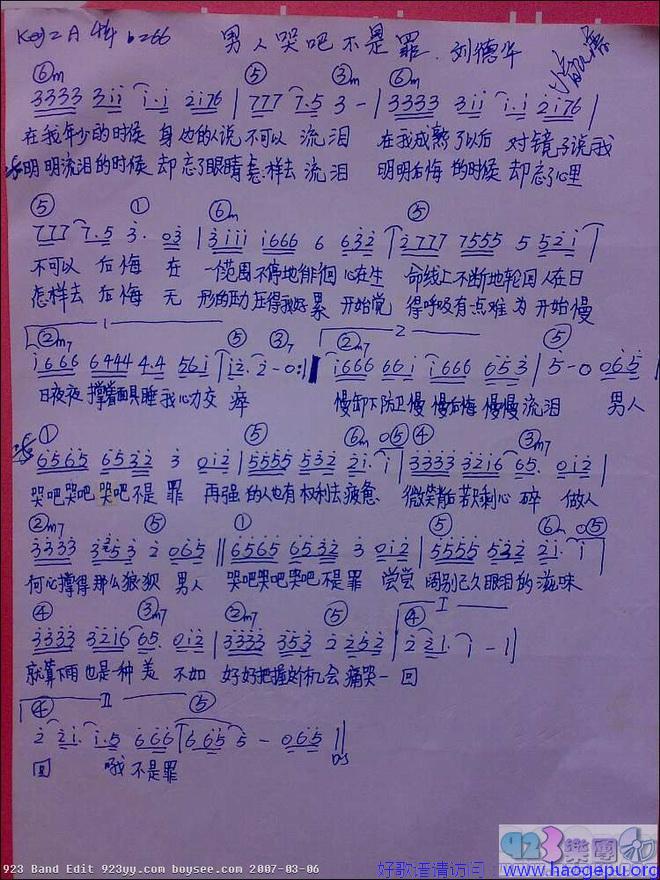 Key=A 4/4 b=66 男人哭吧不是罪.刘德华
⑥m ⑤ ③m ⑥m
3333 3ii i.i 2i76 | 777 7.5 3 - | 3333 3ii i.i 2i76 |
在我年少的时候 身边的人说不可以 流泪 在我成熟了以后 对镜子说我
明明流泪的时候 却忘了眼睛怎样去 流泪 明明后悔的时候 却忘了心里
⑤ ① ⑥m ⑤
777 7.5 3. 03 | 3iii i666 6 632 | 2777 7555 5 52i |
不可以 后悔 在 一个范围不停地徘徊 心在生 命线上不断地轮回 人在日
怎样去 后悔 无 形的压力压得我好累 开始觉 得呼吸有点难为 开始慢
1 2
②m7 ⑤ ③7 ②m7 ⑤
i666 6444 4.4 56i | i2. 2-0 :| i666 66i i666 653 | 5-0 065 |
日夜夜 撑着面具睡 我心力交 瘁 慢卸下防卫慢 慢后悔 慢慢流泪 男人
① ⑤ ⑥m 0⑤ ④ ③m7
6565 6532 3 0i2 | 5555 532 2i. i | 3333 32i6 65. 0i2 |
哭吧哭吧 哭吧不是 罪 再强 的人也有权利去疲惫 微笑背后若只剩心 碎 做人
②m7 ⑤ ① ⑤ ⑥m 0⑤
3333 3253 2 065 || 6565 6532 3 0i2 | 5555 532 2i. i |
何必撑得 那么狼狈 男人 哭吧哭吧哭吧不是罪 尝尝 阔别已久眼泪的滋味
④ ③m7 ②m7 ⑤ ④ I
3333 32i6 65. 0i2 | 3333 353 2 2252 | 2 22i. i i - i ||
就算下雨 也是一种 美 不如 好好把握这个机会 痛哭一 回
④ II ⑤
2 2i. i.5 666 | 665 5 - 065 ||
回 哦 不是罪 DS
923 Band Edit 923yy.com boysee.com 2007-03-06
923樂團和
好歌谱请访问：www.haogepu.org